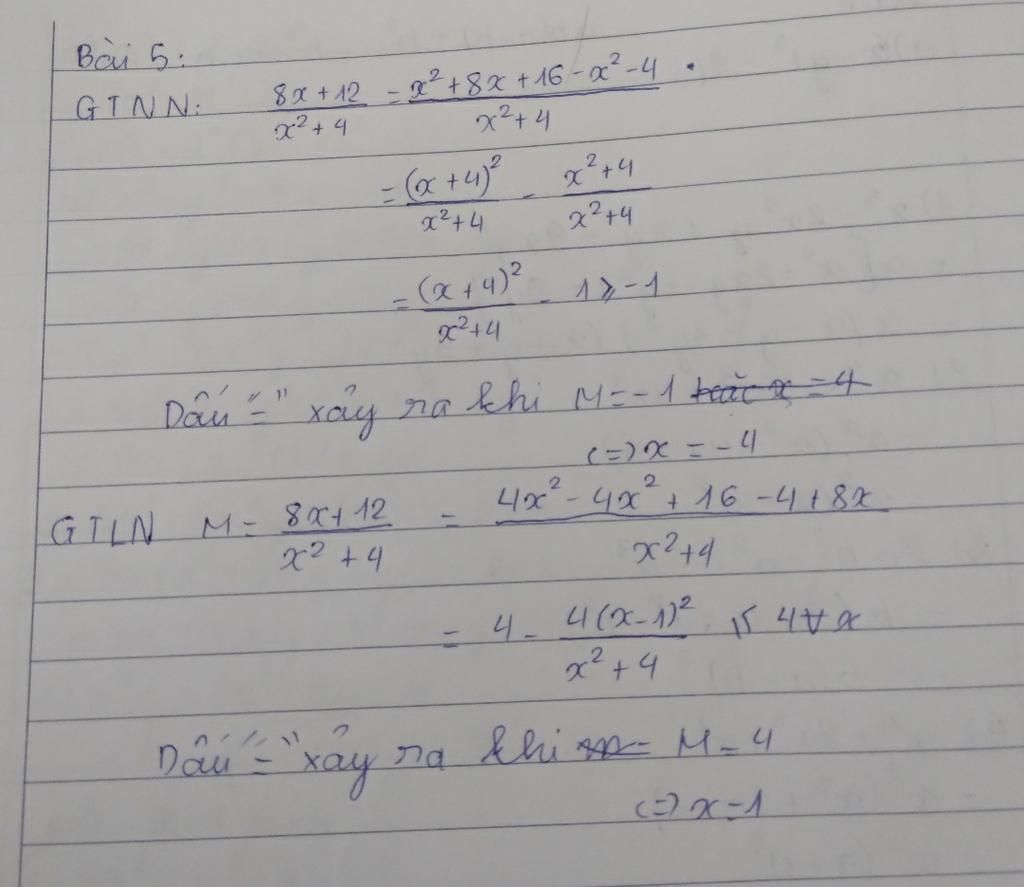 Bài 5:
GTNN: (8x+12)/(x²+4) = (x²+8x+16-x²-4)/(x²+4) .
= (x+4)²/(x²+4) - (x²+4)/(x²+4)
= (x+4)²/(x²+4) - 1 ≥ -1
Dấu "=" xảy ra khi M = -1
(=) x = -4
GTLN M = (8x+12)/(x²+4) = (4x²-4x²+16-4+8x)/(x²+4)
= 4 - 4(x-1)²/(x²+4) ≤ 4 ∀ x
Dấu "=" xảy ra khi M = 4
(=) x = 1